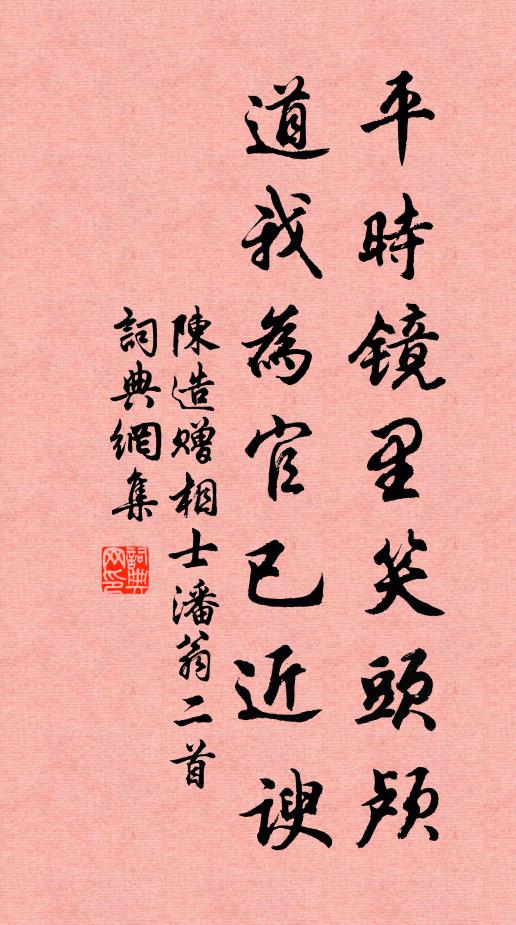 平時鏡里笑頭颅
道我為官已近諛
陳造贈相士潘翁二首
詞典網集
詞典网印